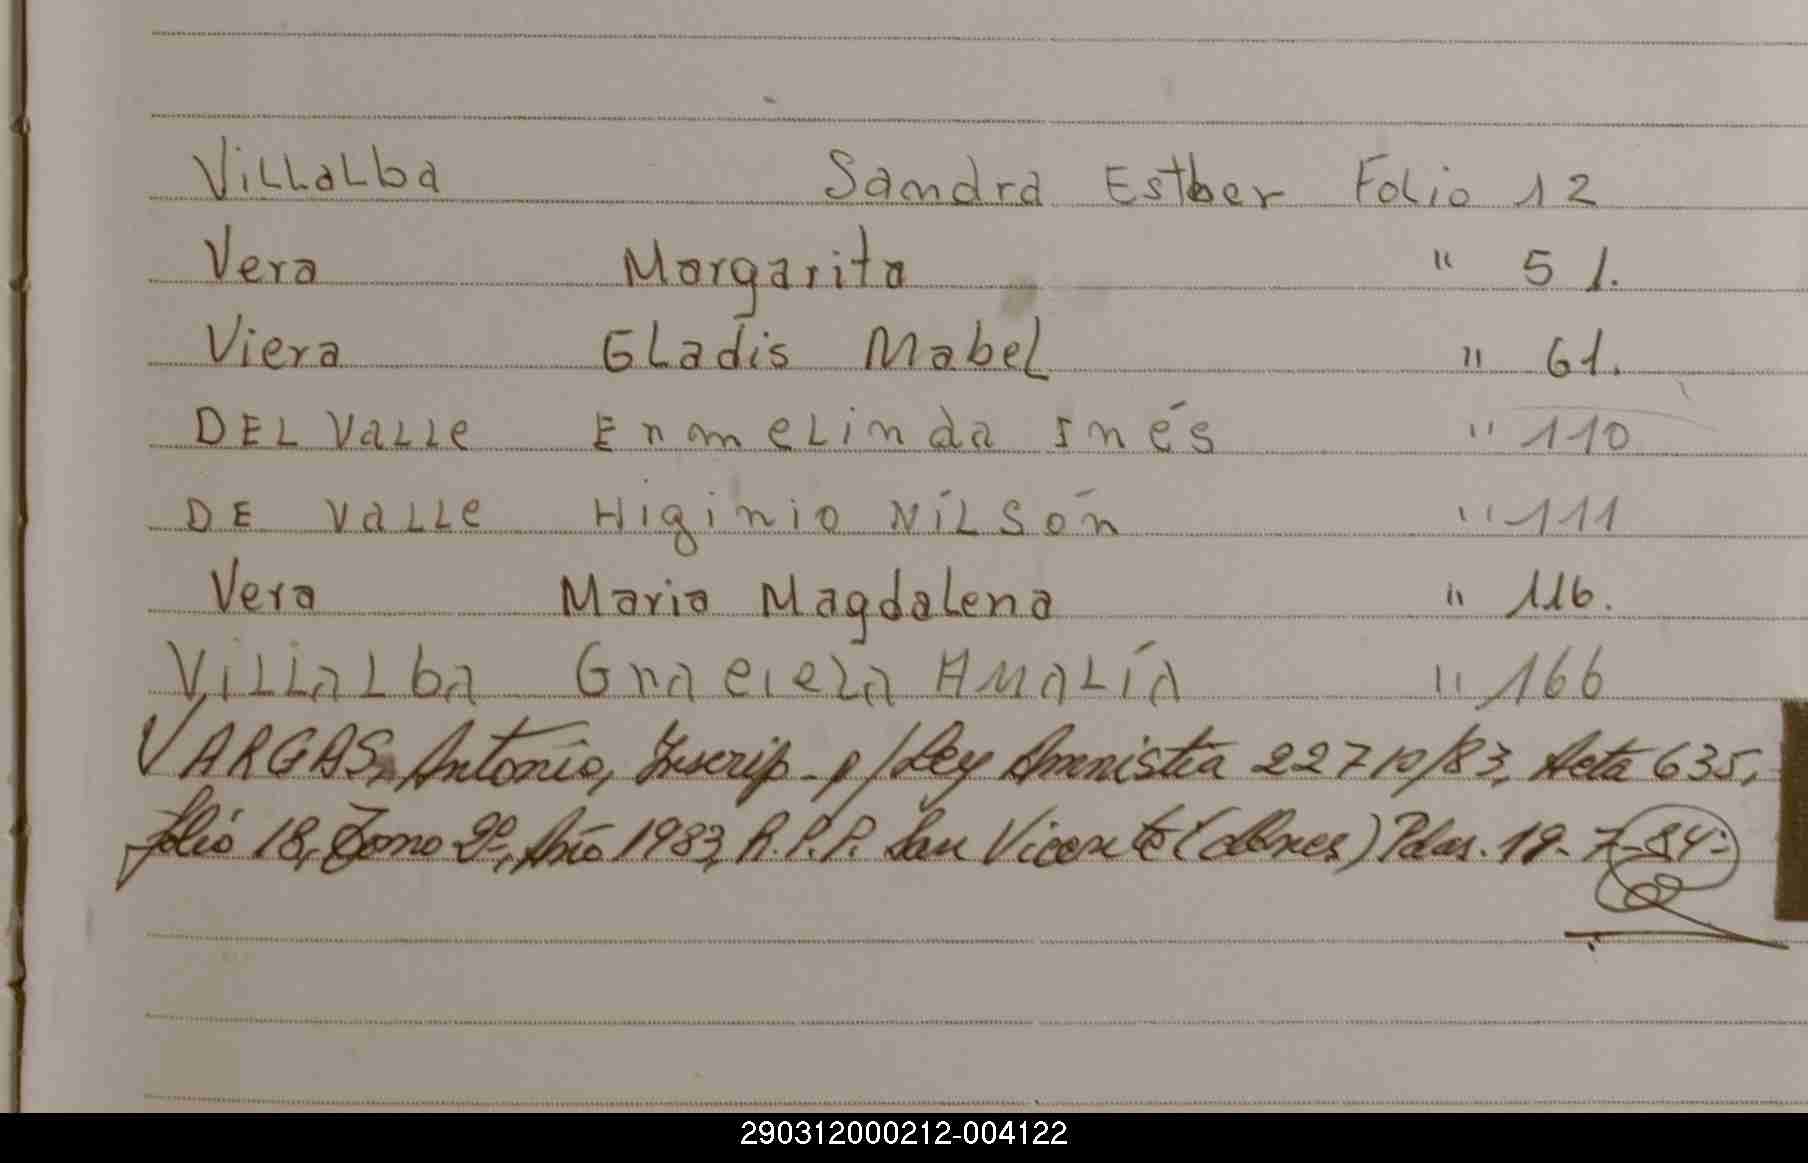 Villalba Sandra Esther Folio 12
Vera Margarita " 51.
Viera Gladis Mabel " 61.
DEL VALLE Ermelinda Inés " 110
DE VALLE Higinio Nílsón " 111
Vera Maria Magdalena " 116.
Villalba Graciela Amalía " 166
VARGAS, Antonio, Inscrip. p/Ley Amnistia 22710/83, Acta 635,
folio 18, Tomo 2º, Año 1983, R.P.P. San Vicente (Mnes) Pdas. 19-7-84-
290312000212-004122